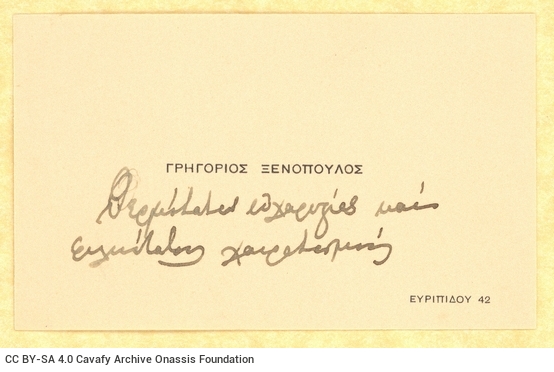 ΓΡΗΓΟΡΙΟΣ ΞΕΝΟΠΟΥΛΟΣ
Θερμότατες εὐχαριστίες καὶ
φιλικότατους χαιρετισμούς
ΕΥΡΙΠΙΔΟΥ 42
CC BY-SA 4.0 Cavafy Archive Onassis Foundation